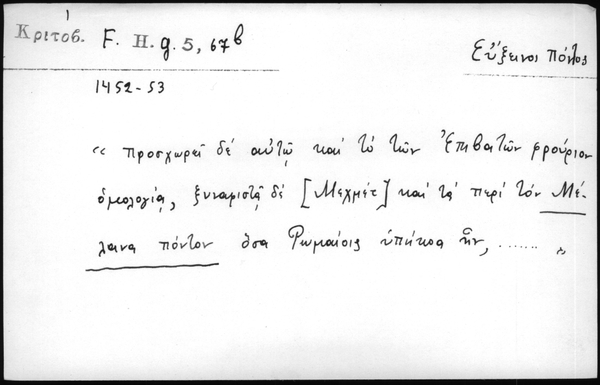 Κριτοβ. F. H. g. 5, 67b
Εὔξεινος Πόντος
1452-53
“ προσχωρεῖ δέ αὐτῷ καί τό τῶν Ἐπιβατῶν φρούριον
ὁμολογίᾳ, ξυναφιστᾷ δέ [Μεχμέτ] καί τά περί τόν Μέ-
λανα πόντον ὅσα Ρωμαίοις ὑπήκοα ἦν, ....... „